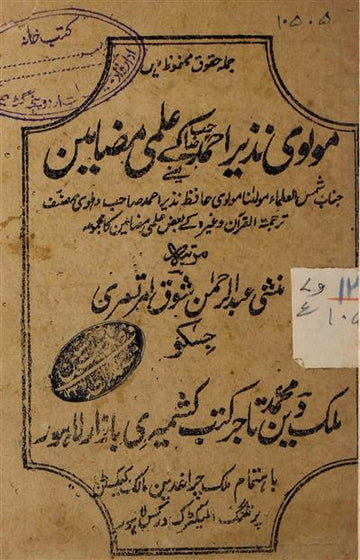 ۱۰۵۰۵
کتب خانہ
جملہ حقوق محفوظ ہیں
مولوی نذیر احمد صاحب کے علمی مضامین
یعنے
جناب شمس العلماء مولانا مولوی حافظ نذیر احمد صاحب دہلوی مصنف
ترجمۃ القرآن وغیرہ کے بعض علمی مضامین کا مجموعہ
مرتبہ
منشی عبدالرحمٰن شوق امرتسری
جسکو
ملک دین محمد تاجر کتب کشمیری بازار لاہور
باہتمام ملک چراغدین مالک
پرنٹنگ الیکٹرک ورکس لاہور